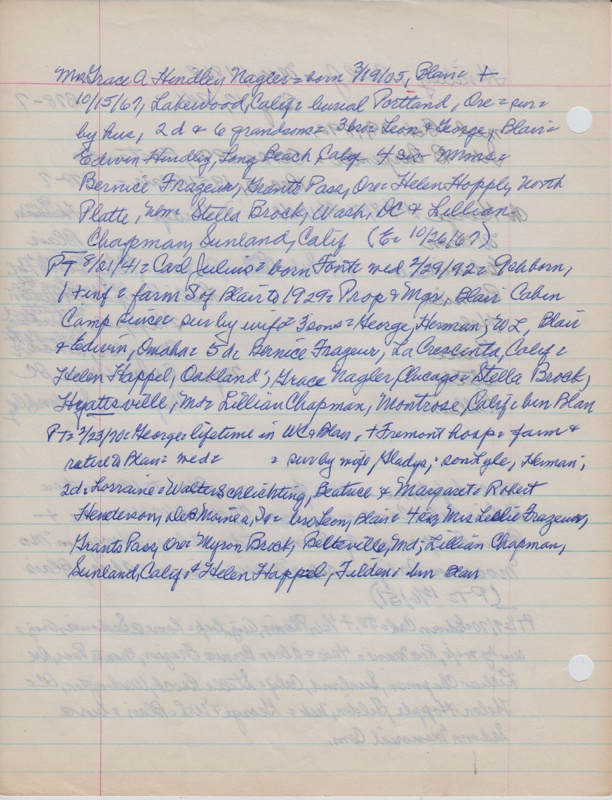 Mrs Grace A Hindley Nagler = born 3/19/05, Blair +
10/15/67, Lakewood, Calif = burial Portland, Ore = sur =
by hus, 2 d & 6 grandsons = 3 bro = Leon & George, Blair =
Edwin Hindley, Long Beach, Calif 4 sis - Mmes =
Bernice Frazeur, Grants Pass, Ore = Helen Hopply, North
Platte, = Stella Brock, Wash, DC & Lillian
Chapman, Sunland, Calif (E = 10/26/67)
PT 8/21/41 = Carl Julius = born Font med 2/29/92 =
1 + inf = farm S of Blair to 1929 = Prop & Mgr, Blair Cabin
Camp since = sur by wife = 3 sons = George, Herman, W L, Blair
& Edwin, Omaha = 5 d = Bernice Frazeur, La Crescenta, Calif =
Helen Happel, Oakland; Grace Nagler, Chicago = Stella Brock,
Hyattsville, Md = Lillian Chapman, Montrose, Calif = bur Blair
PT = 7/23/70 = George = lifetime in WC & Blair, + Fremont hosp = farm &
retire to Blair = med = = sur by wife, Gladys, = son Lyle, Herman;
2 d = Lorraine = Walter Schlichting, Beatrice & Margaret = Robert
Henderson, Des Moines, Ia = bro Leon, Blair = 4 sis, Mrs Leslie Frazeur,
Grants Pass, Ore = Myron Brock, Beltsville, Md; Lillian Chapman,
Sunland, Calif & Helen Happel, Tilden = bur Blair